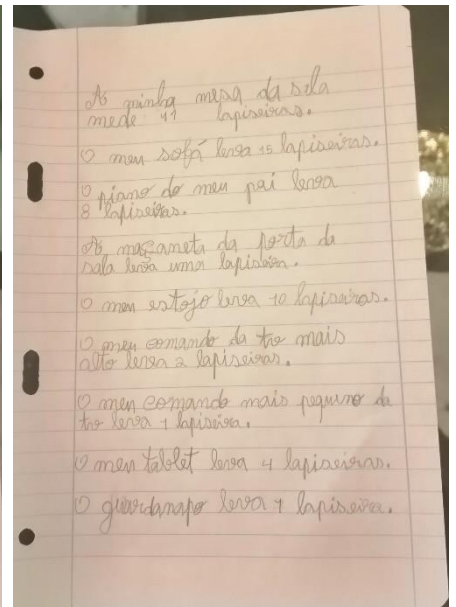 A minha mesa da sala
mede 11 lapiseiras.
O meu sofá leva 15 lapiseiras.
O piano do meu pai leva
8 lapiseiras.
A maçaneta da porta da
sala leva uma lapiseira.
O meu estojo leva 10 lapiseiras.
O meu comando da tv mais
alto leva 2 lapiseiras.
O meu comando mais pequeno da
tv leva 1 lapiseira.
O meu tablet leva 4 lapiseiras.
O guardanapo leva 1 lapiseira.